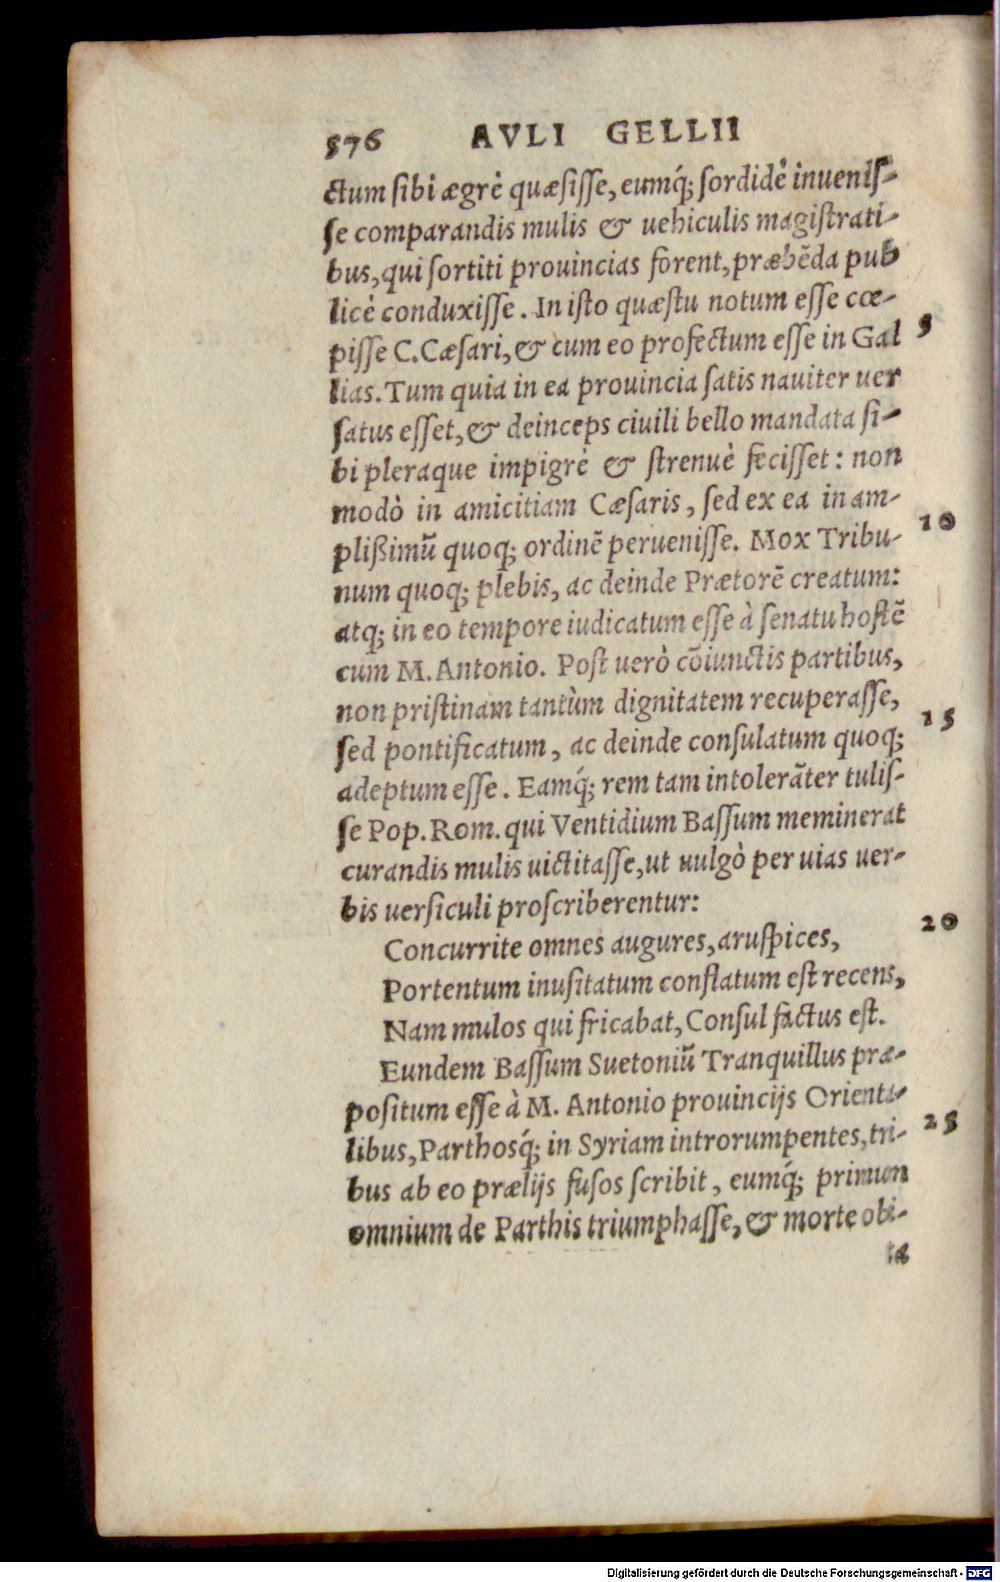 576 AVLI GELLII
ctum sibi ægrè quæsisse, eumq́; sordidè inuenis-
se comparandis mulis & uehiculis magistrati-
bus, qui sortiti prouincias forent, præbēda pub
licè conduxisse. In isto quæstu notum esse cœ-
pisse C. Cæsari, & cum eo profectum esse in Gal 5
lias. Tum quia in ea prouincia satis nauiter uer
satus esset, & deinceps ciuili bello mandata si-
bi pleraque impigrè & strenuè fecisset: non
modò in amicitiam Cæsaris, sed ex ea in am-
plißimū quoq; ordinē peruenisse. Mox Tribu- 10
num quoq; plebis, ac deinde Prætorē creatum:
atq; in eo tempore iudicatum esse à senatu hostē
cum M. Antonio. Post uerò cōiunctis partibus,
non pristinam tantùm dignitatem recuperasse,
sed pontificatum, ac deinde consulatum quoq; 15
adeptum esse. Eamq́; rem tam intolerāter tulis-
se Pop. Rom. qui Ventidium Bassum meminerat
curandis mulis uictitasse, ut uulgò per uias uer-
bis uersiculi proscriberentur:
Concurrite omnes augures, aruspices, 20
Portentum inusitatum conflatum est recens,
Nam mulos qui fricabat, Consul factus est.
Eundem Bassum Suetoniū Tranquillus præ-
positum esse à M. Antonio prouincijs Orienta-
libus, Parthosq́; in Syriam introrumpentes, tri- 25
bus ab eo prælijs fusos scribit, eumq́; primum
omnium de Parthis triumphasse, & morte obi-
ta
Digitalisierung gefördert durch die Deutsche Forschungsgemeinschaft - DFG